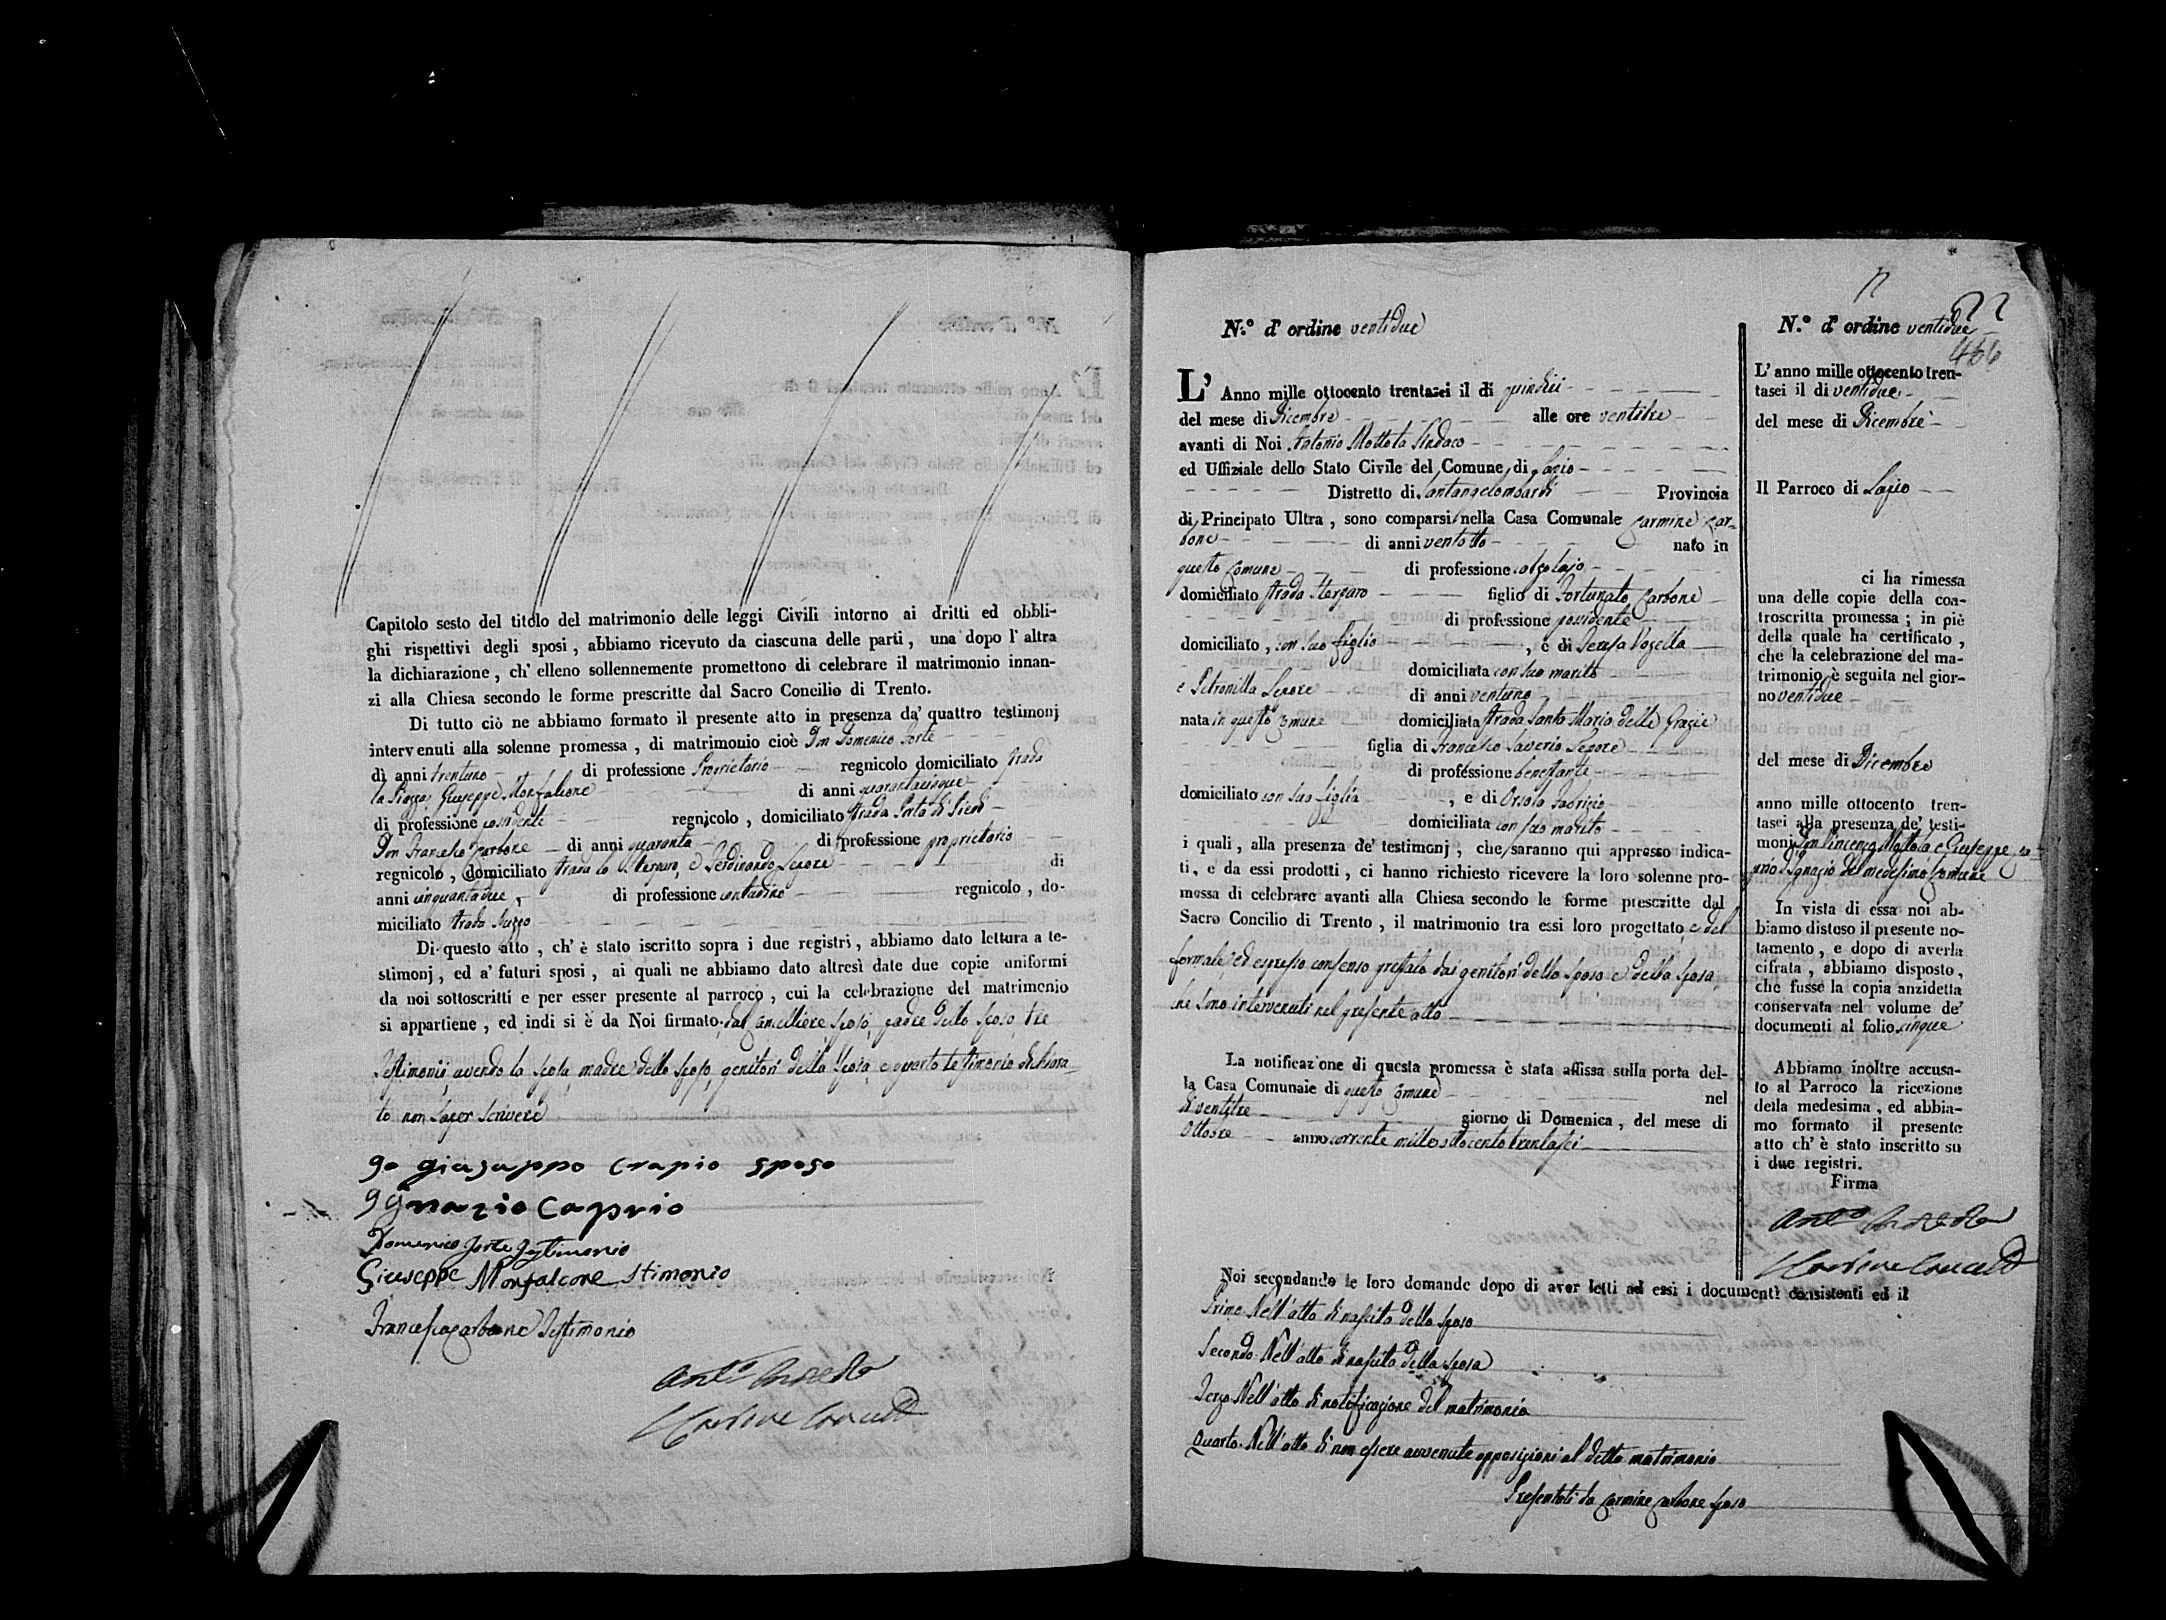 Capitolo sesto del titolo del matrimonio delle leggi Civili intorno ai dritti ed obbli-
ghi rispettivi degli sposi, abbiamo ricevuto da ciascuna delle parti, una dopo l'altra
la dichiarazione, ch'elleno sollennemente promettono di celebrare il matrimonio innan-
zi alla Chiesa secondo le forme prescritte dal Sacro Concilio di Trento.
Di tutto ciò ne abbiamo formato il presente atto in presenza da' quattro testimonj
intervenuti alla solenne promessa, di matrimonio cioè Don Domenico Forte
di anni trentuno di professione Proprietario regnicolo domiciliato strada
la Piazza, Giuseppe Monfalcone di anni quarantacinque
di professione possidente regnicolo, domiciliato strada Porta di Piedi
Don Francesco Carbone di anni quaranta di professione proprietario
regnicolo, domiciliato strada lo e Ferdinando Sepore di
anni cinquantadue, di professione contadino regnicolo, do-
miciliato strada
Di questo atto, ch'è stato iscritto sopra i due registri, abbiamo dato lettura a te-
stimonj, ed a' futuri sposi, ai quali ne abbiamo dato altresì date due copie uniformi
da noi sottoscritti e per esser presente al parroco, cui la celebrazione del matrimonio
si appartiene, ed indi si è da Noi firmato, dal Cancelliere, sposo, padre dello sposo, tre
Testimonii, avendo la sposa, madre dello sposo, genitori della sposa, e quarto testimonio dichiara-
to non saper scrivere
giusappo crapio sposo
Ignazio Caprio
Domenico Forte Testimonio
Giuseppe Monfalcone stimonio
Francesco Carbone Testimonio
22
466
N.º d'ordine ventidue
L'Anno mille ottocento trentasei il di quindici
del mese di Dicembre alle ore ventitre
avanti di Noi Antonio Mottola Sindaco
ed Uffiziale dello Stato Civile del Comune di Lapio
Distretto di Santangelombardi Provincia
di Principato Ultra, sono comparsi nella Casa Comunale Carmine Car-
bone di anni ventotto nato in
questo Comune di professione calzolajo
domiciliato strada figlio di Fortunato Carbone
di professione possidente
domiciliato, con suo figlio, e di Teresa
domiciliata con suo marito
e Petronilla Sepore di anni ventuno
nata in questo Comune domiciliata strada Santa Maria delle Grazie
figlia di Francesco Saverio Sepore
di professione benestante
domiciliato con sua figlia, e di Orsola Fabrizio
domiciliata con suo marito
i quali, alla presenza de' testimonj, che saranno qui appresso indica-
ti, e da essi prodotti, ci hanno richiesto ricevere la loro solenne pro-
messa di celebrare avanti alla Chiesa secondo le forme prescritte dal
Sacro Concilio di Trento, il matrimonio tra essi loro progettato, e del
formale ed espresso consenso prestato dai genitori dello sposo e della sposa,
che sono intervenuti nel presente atto
La notificazione di questa promessa è stata affissa sulla porta del-
la Casa Comunale di questo Comune nel
di ventitre giorno di Domenica, del mese di
Ottobre anno corrente mille ottocento trentasei
Noi secondando le loro domande dopo di aver letti ad essi i documenti consistenti ed il
Primo Nell'atto di nascita dello sposo
Secondo Nell'atto di nascita della sposa
Terzo Nell'atto di notificazione del matrimonio
Quarto Nell'atto di non essere avvenute opposizioni al detto matrimonio
Presentati da Carmine Carbone sposo
N.º d'ordine ventidue
L'anno mille ottocento tren-
tasei il di ventidue
del mese di Dicembre
Il Parroco di Lapio
ci ha rimessa
una delle copie della con-
troscritta promessa; in piè
della quale ha certificato,
che la celebrazione del ma-
trimonio è seguita nel gior-
no ventidue
del mese di Dicembre
anno mille ottocento tren-
tasei alla presenza de' testi-
moni Don Vincenzo Mottola e Giuseppe Ca-
prio d'Ignazio del medesimo Comune
In vista di essa noi ab-
biamo disteso il presente no-
tamento, e dopo di averla
cifrata, abbiamo disposto,
che fusse la copia anzidetta
conservata nel volume de'
documenti al folio cinque
Abbiamo inoltre accusa-
to al Parroco la ricezione
della medesima, ed abbia-
mo formato il presente
atto ch'è stato inscritto su
i due registri.
Firma